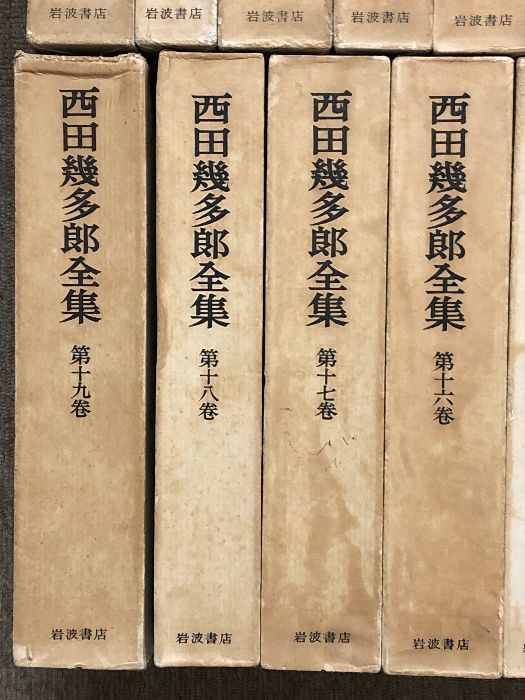 岩波書店
岩波書店
岩波書店
岩波書店
岩波書店
西田幾多郎全集
第十九卷
岩波書店
西田幾多郎全集
第十八卷
岩波書店
西田幾多郎全集
第十七卷
岩波書店
西田幾多郎全集
第十六卷
岩波書店